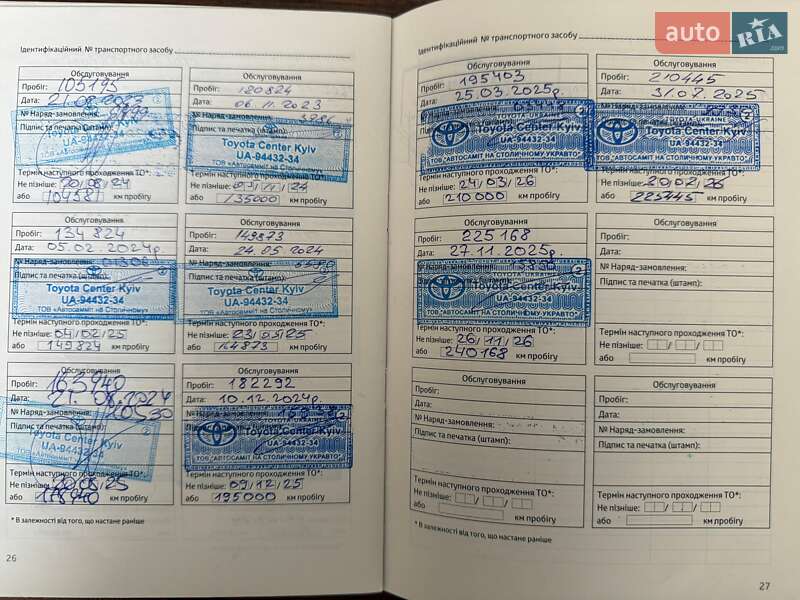 auto RIA .com
Ідентифікаційний № транспортного засобу
Обслуговування
Пробіг: 105195
Дата:
№ Наряд-замовлення:
Підпис та печатка (штамп):
Toyota Center Kyiv
UA-94432-34
Термін наступного проходження ТО*:
Не пізніше: 20/08/24
або км пробігу
Обслуговування
Пробіг: 120824
Дата: 06.11.2023
№ Наряд-замовлення:
Підпис та печатка (штамп):
Toyota Center Kyiv
UA-94432-34
ТОВ «Автосаміт на Столичному»
Термін наступного проходження ТО*:
Не пізніше: 24
або 135000 км пробігу
Обслуговування
Пробіг: 134824
Дата: 05.02.2024р.
№ Наряд-замовлення:
Підпис та печатка (штамп):
Toyota Center Kyiv
UA-94432-34
ТОВ «Автосаміт на Столичному»
Термін наступного проходження ТО*:
Не пізніше: 04/02/25
або 149824 км пробігу
Обслуговування
Пробіг: 149873
Дата: 24.05.2024
№ Наряд-замовлення:
Підпис та печатка (штамп):
Toyota Center Kyiv
UA-94432-34
ТОВ «Автосаміт на Столичному»
Термін наступного проходження ТО*:
Не пізніше: 23/05/25
або 164873 км пробігу
Обслуговування
Пробіг: 163940
Дата: 21.08.2024
№ Наряд-замовлення:
Підпис та печатка (штамп):
Toyota Center Kyiv
UA-94432-34
Термін наступного проходження ТО*:
Не пізніше: 20/08/25
або 178940 км пробігу
Обслуговування
Пробіг: 182292
Дата: 10.12.2024р.
№ Наряд-замовлення:
TOYOTA UKRAINE
Toyota Center Kyiv
UA-94432-34
ТОВ "АВТОСАМІТ НА СТОЛИЧНОМУ УКРАВТО"
Термін наступного проходження ТО*:
Не пізніше: 09/12/25
або 195000 км пробігу
* В залежності від того, що настане раніше
26
Ідентифікаційний № транспортного засобу
Обслуговування
Пробіг: 195403
Дата: 25.03.2025р.
TOYOTA UKRAINE
Toyota Center Kyiv
UA-94432-34
ТОВ "АВТОСАМІТ НА СТОЛИЧНОМУ УКРАВТО"
Термін наступного проходження ТО*:
Не пізніше: 24/03/26
або 210000 км пробігу
Обслуговування
Пробіг: 210445
Дата: 31.07.2025
№ Наряд-замовлення:
TOYOTA UKRAINE
Toyota Center Kyiv
UA-94432-34
ТОВ "АВТОСАМІТ НА СТОЛИЧНОМУ УКРАВТО"
Термін наступного проходження ТО*:
Не пізніше: 26
або 225445 км пробігу
Обслуговування
Пробіг: 225168
Дата: 27.11.2025р.
№ Наряд-замовлення:
Toyota Center Kyiv
UA-94432-34
ТОВ "АВТОСАМІТ НА СТОЛИЧНОМУ УКРАВТО"
Термін наступного проходження ТО*:
Не пізніше: 26/11/26
або 240168 км пробігу
Обслуговування
Пробіг:
Дата:
№ Наряд-замовлення:
Підпис та печатка (штамп):
Термін наступного проходження ТО*:
Не пізніше:
або км пробігу
Обслуговування
Пробіг:
Дата:
№ Наряд-замовлення:
Підпис та печатка (штамп):
Термін наступного проходження ТО*:
Не пізніше:
або км пробігу
Обслуговування
Пробіг:
Дата:
№ Наряд-замовлення:
Підпис та печатка (штамп):
Термін наступного проходження ТО*:
Не пізніше:
або км пробігу
* В залежності від того, що настане раніше
27